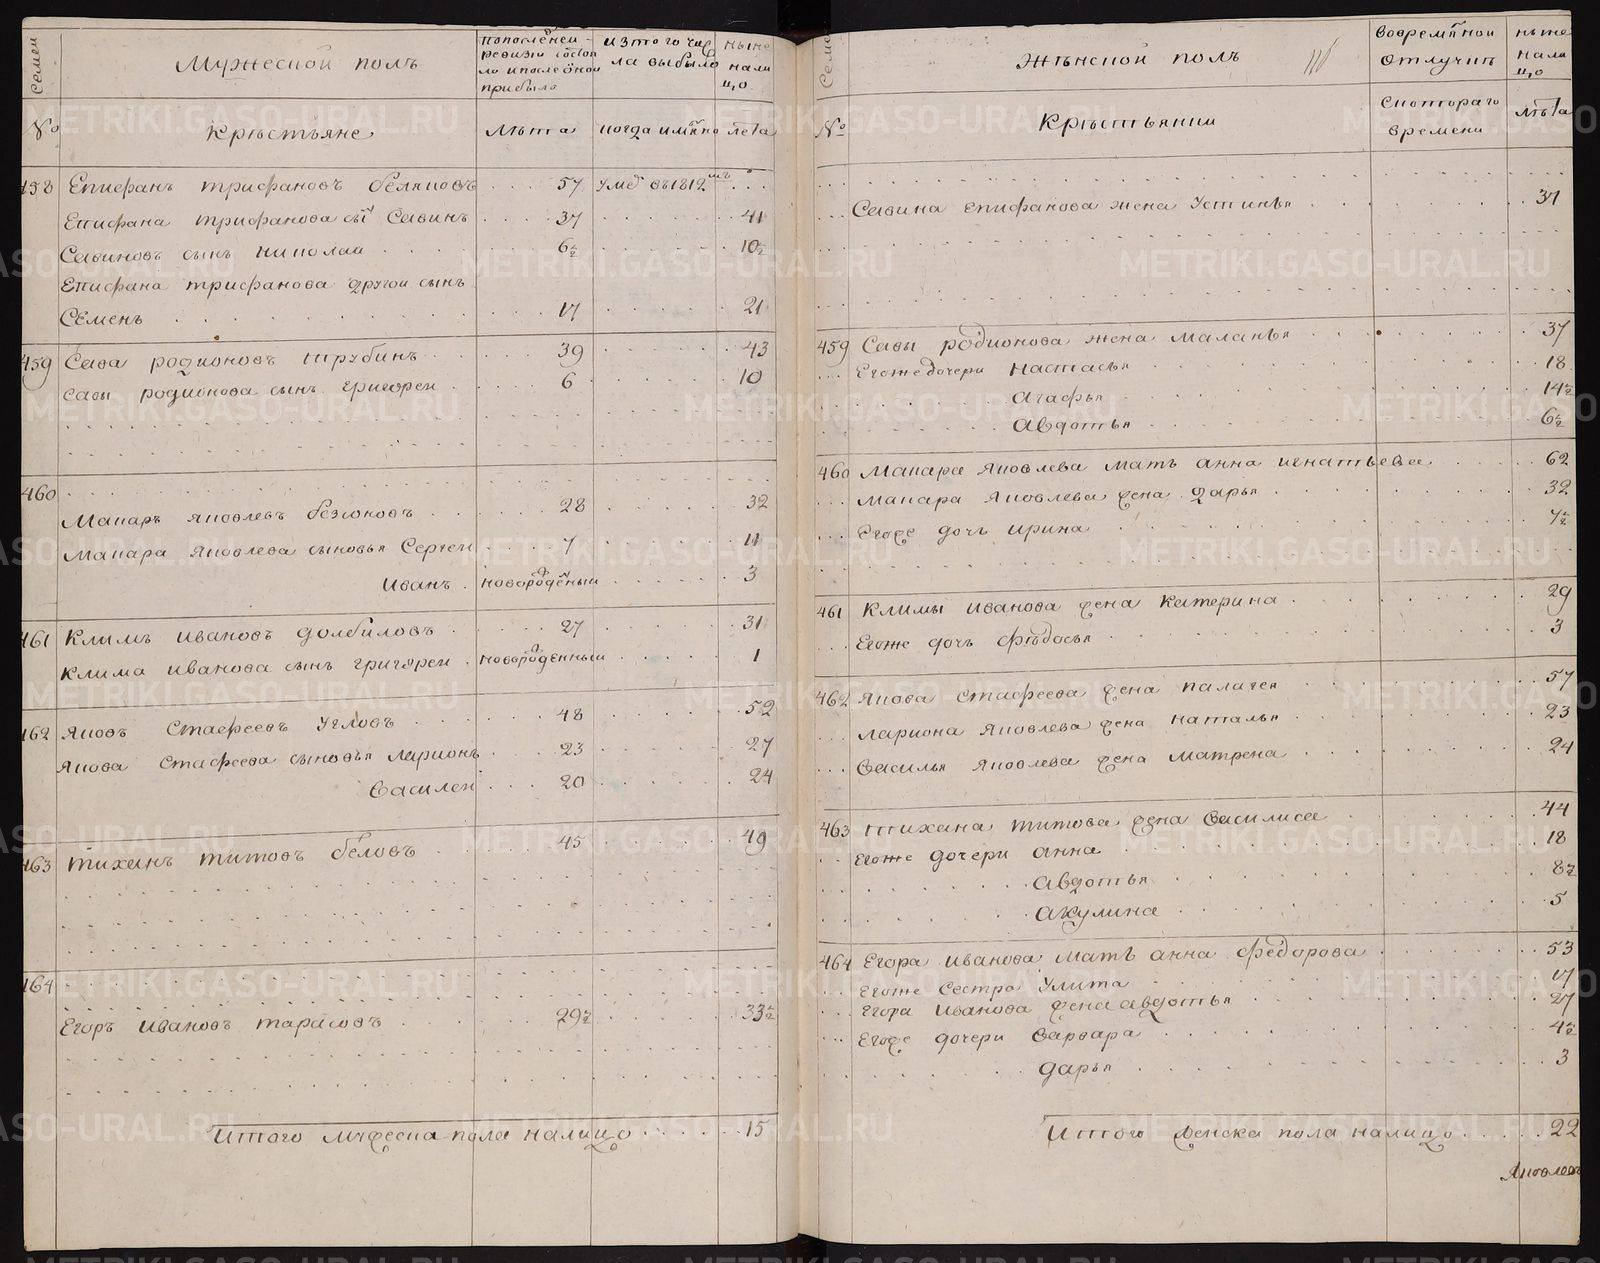 Семеи
Мужеской полъ
по последней
ревизіи состоя
ло и после оной
прибыло
изтого чис
ла выбыло
ныне
нали
цо
№
Крестьяне
Лѣта
когда имянно
лета
458 Епифанъ трифановъ беляковъ 57 умеръ въ 1812мъ
Епифана трифанова сынъ Савинъ 37 41
Савиновъ сынъ николаи 6½ 10½
Епифана трифанова другои сынъ
Семенъ 17 21
459 Сава родионовъ трубинъ 39 43
савы родионова сынъ григореи 6 10
460
Макаръ яковлевъ безюковъ 28 32
Макара яковлева сыновья Сергеи 7 11
Иванъ новорожденыи 3
461 Климъ ивановъ долбиловъ 27 31
Клима иванова сынъ григореи новорожденныи 1
462 яковъ Стафеевъ Угловъ 48 52
якова Стафеева сыновья ларионъ 23 27
василеи 20 24
463 тиханъ титовъ беловъ 45 49
464
Егоръ ивановъ тарасовъ 29½ 33½
Итого мужеска пола налицо 15
Семеи
Женской полъ
во времянной
отлучкѣ
ныне
нали
цо
№
Крестьянки
Скотораго
времени
лѣта
Савина епифанова жена Устинья 37
459 Савы родионова жена маланья 37
Егоже дочери настасья 18
агафья 14½
авдотья 6½
460 Макара яковлева мать анна игнатьева 62
макара яковлева жена дарья 32
Егоже дочь ирина 7½
461 Климы иванова жена катерина 29
Егоже дочь федосья 3
462 якова стафеева жена палагея 57
лариона яковлева жена наталья 23
василья яковлева жена матрена 24
463 тихана титова жена василиса 44
Егоже дочери анна 18
авдотья 8½
акулина 5
464 Егора иванова мать анна федорова 53
Егоже сестра улита 17
Егора иванова жена авдотья 27
Егоже дочери варвара 4½
дарья 3
Итого женска пола налицо 22
Яковлевъ
METRIKI.GASO-URAL.RU